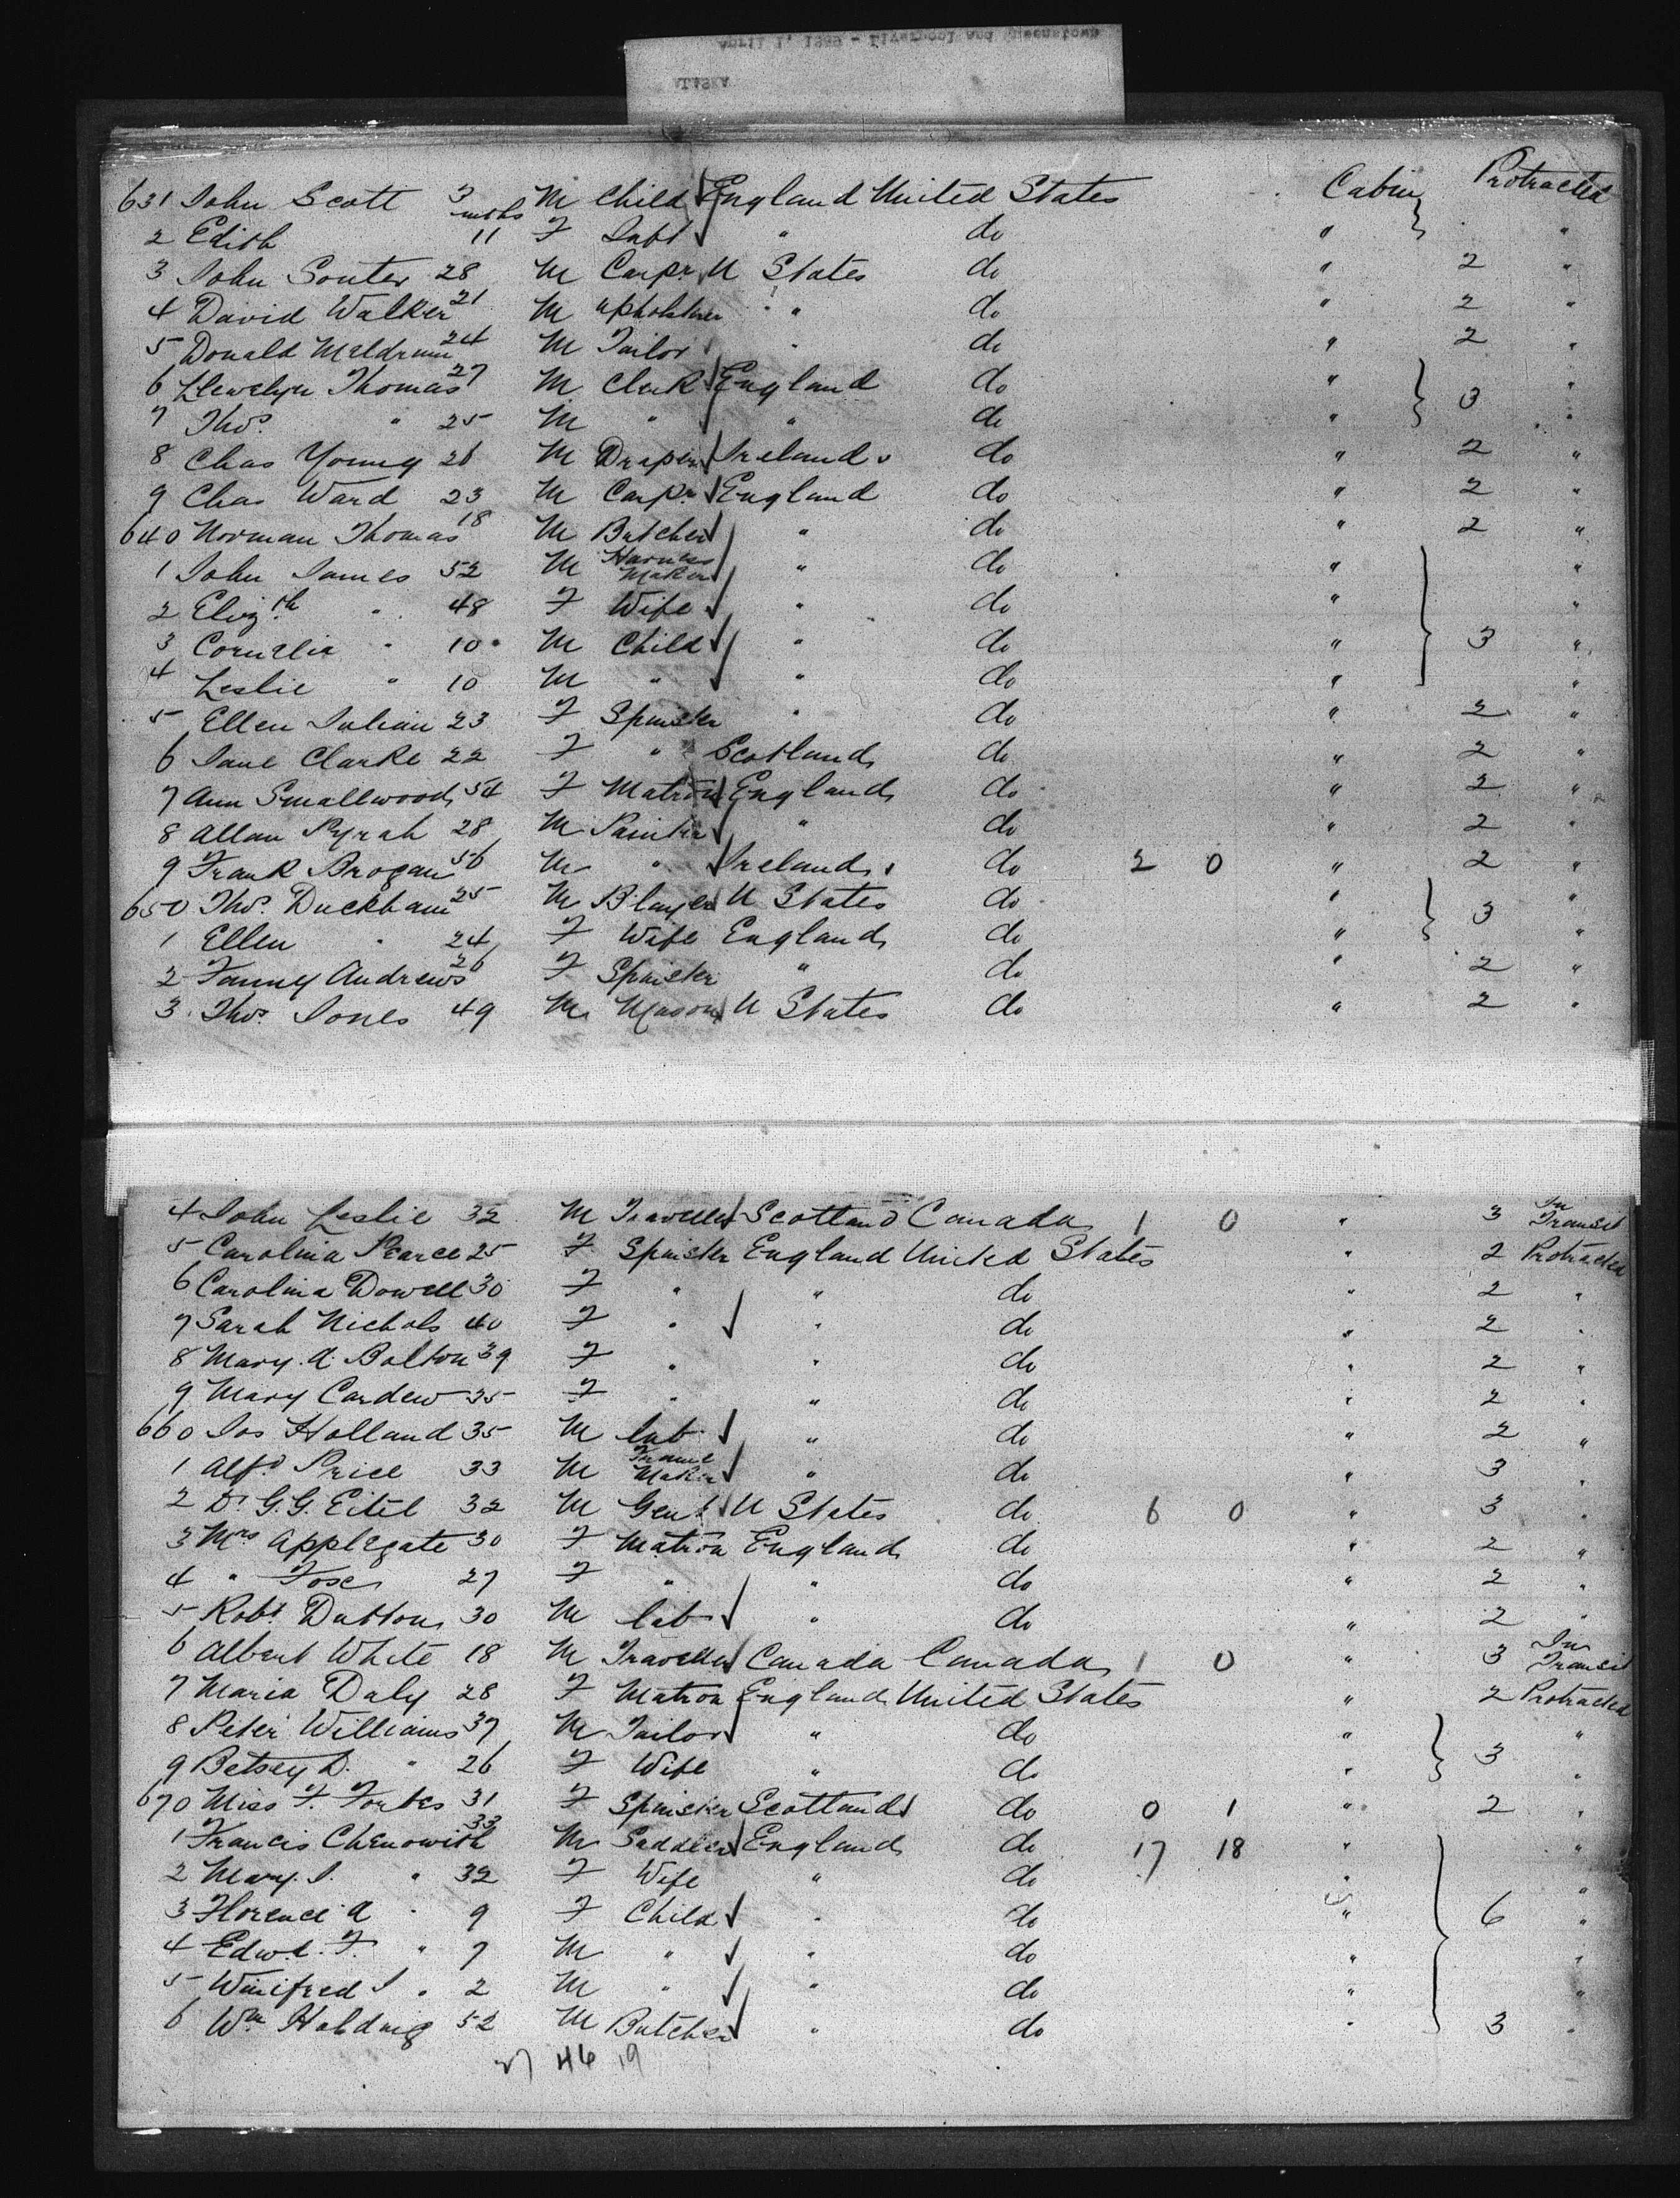 April 1, 1899 - Liverpool and Queenstown
ALASKA
631 John Scott 3 M Child England United States Cabin Protracted
mths
2 Edith 11 F Inft " do " "
3 John Souter 28 M Carpr U States do " 2 "
4 David Walker 21 M Upholsterer " " do " 2 "
5 Donald Meldrum 24 M Tailor " do " 2 "
6 Llewelyn Thomas 27 M Clerk England do " "
7 Thos. " 25 M " " do " 3 "
8 Chas Young 26 M Draper Ireland do " 2 "
9 Chas Ward 23 M Carpr England do " 2 "
640 Norman Thomas 18 M Butcher " do " 2 "
1 John James 52 M Harness Maker " do " "
2 Elizth " 48 F Wife " do " "
3 Cornelia " 10 M Child " do " 3 "
4 Leslie " 10 M " " do " "
5 Ellen Julian 23 F Spinster " do " 2 "
6 Jane Clarke 22 F " Scotland do " 2 "
7 Ann Smallwood 54 F Matron England do " 2 "
8 Allan Pyrah 28 M Painter " do " 2 "
9 Frank Brogan 56 M " Ireland do 2 0 " 2 "
650 Thos. Duckham 25 M B layer U States do " "
1 Ellen " 24 F Wife England do " 3 "
2 Fanny Andrews 26 F Spinster " do " 2 "
3 Thos. Jones 49 M Mason U States do " 2 "
4 John Leslie 32 M Traveller Scotland Canada 1 0 " 3 In Transit
5 Carolina Pearce 25 F Spinster England United States " 2 Protracted
6 Carolina Dowell 30 F " " do " 2 "
7 Sarah Nichols 40 F " " do " 2 "
8 Mary. A. Bolton 39 F " " do " 2 "
9 Mary Cardew 35 F " " do " 2 "
660 Jos Holland 35 M lab " do " 2 "
1 Alfd Price 33 M Frame Maker " do " 3 "
2 Dr G. G. Eitel 32 M Gent U States do 6 0 " 3 "
3 Mrs Applegate 30 F Matron England do " 2 "
4 " 27 F " " do " 2 "
5 Robt Dutton 30 M lab " do " 2 "
6 Albert White 18 M Traveller Canada Canada 1 0 " 3 In Transit
7 Maria Daly 28 F Matron England United States " 2 Protracted
8 Peter Williams 37 M Tailor " do " "
9 Betsey D. " 26 F Wife " do " 3 "
670 Miss F. Forbes 31 F Spinster Scotland do 0 1 " 2 "
1 Francis Chenowith 33 M Saddler England do 17 18 " "
2 Mary. J. " 32 F Wife " do " "
3 Florence A " 9 F Child " do " 6 "
4 Edwd. F. " 7 M " " do " "
5 Winifred J " 2 M " " do " "
6 Wm Holding 52 M Butcher " do " 3 "
27 46 19